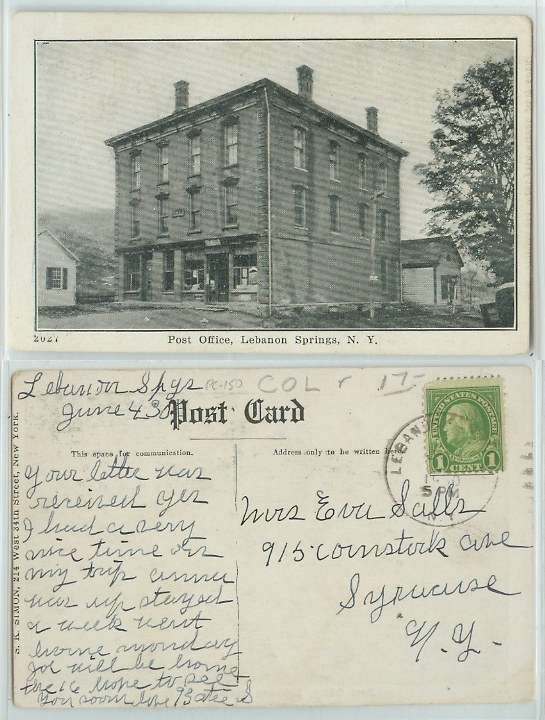 2027
Post Office, Lebanon Springs, N. Y.
Lebanon Spgs
June 4 30
PC-150
COL
17-
Post Card
This space for communication.
Address only to be written here
S. K. SIMON, 214 West 34th Street, New York.
UNITED STATES POSTAGE
1 CENT 1
LEBANON
5 PM
N.Y.
Your letter was
received yes
I had a very
nice time on
my trip anna
was up stayed
a week went
home monday
Joe will be home
the 16 hope to see
you soon love
Mrs Eva Salls
915 comstock ave
Syracuse
N.Y.